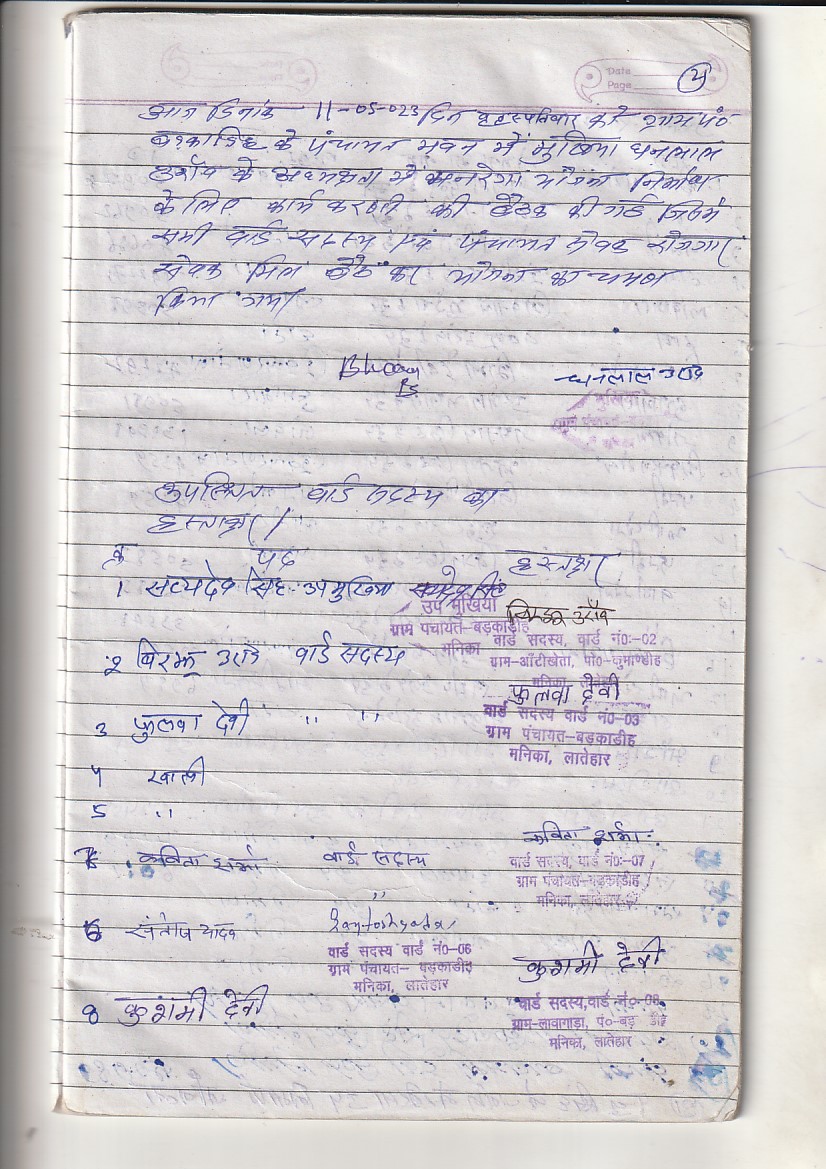 Date
Page
५
आज दिनांक 11-05-023 दिन वृहस्पतिवार को ग्राम पं०
बड़काडीह के पंचायत भवन में मुखिया धनलाल
उराँव के अध्यक्षता में मनरेगा योजना निर्माण
के लिए कार्यकारणी की बैठक की गई जिसमें
सभी वार्ड सदस्य एवं पंचायत सेवक रोजगार
सेवक मिल बैठ कर योजना का चयन
किया गया।
धनलाल उराँव
मुखिया
उपस्थित वार्ड सदस्य का
हस्ताक्षर।
क्र पद हस्ताक्षर
1 सत्यदेव सिंह उपमुखिया सत्यदेव सिंह
उप मुखिया
ग्राम पंचायत-बड़काडीह
मनिका
बिरझु उराँव
वार्ड सदस्य, वार्ड नं०:-02
ग्राम-औंटीखेता, पो०-कुमाण्डीह
मनिका, लातेहार
2 बिरझु उराँव वार्ड सदस्य
फुलवा देवी
वार्ड सदस्य वार्ड नं०-03
ग्राम पंचायत-बड़काडीह
मनिका, लातेहार
3 फुलवा देवी " "
4 खाली
5 "
कविता शर्मा वार्ड सदस्य कविता शर्मा
वार्ड सदस्य, वार्ड नं०:-07
ग्राम पंचायत-बड़काडीह
मनिका, लातेहार
"
6 संतोष यादव Santosh yadav
वार्ड सदस्य वार्ड नं०-06
ग्राम पंचायत- बड़काडीह
मनिका, लातेहार
8 कुशमी देवी कुशमी देवी
वार्ड सदस्य, वार्ड नं०-08
ग्राम-लावागाड़ा, पं०-बड़ डीह
मनिका, लातेहार